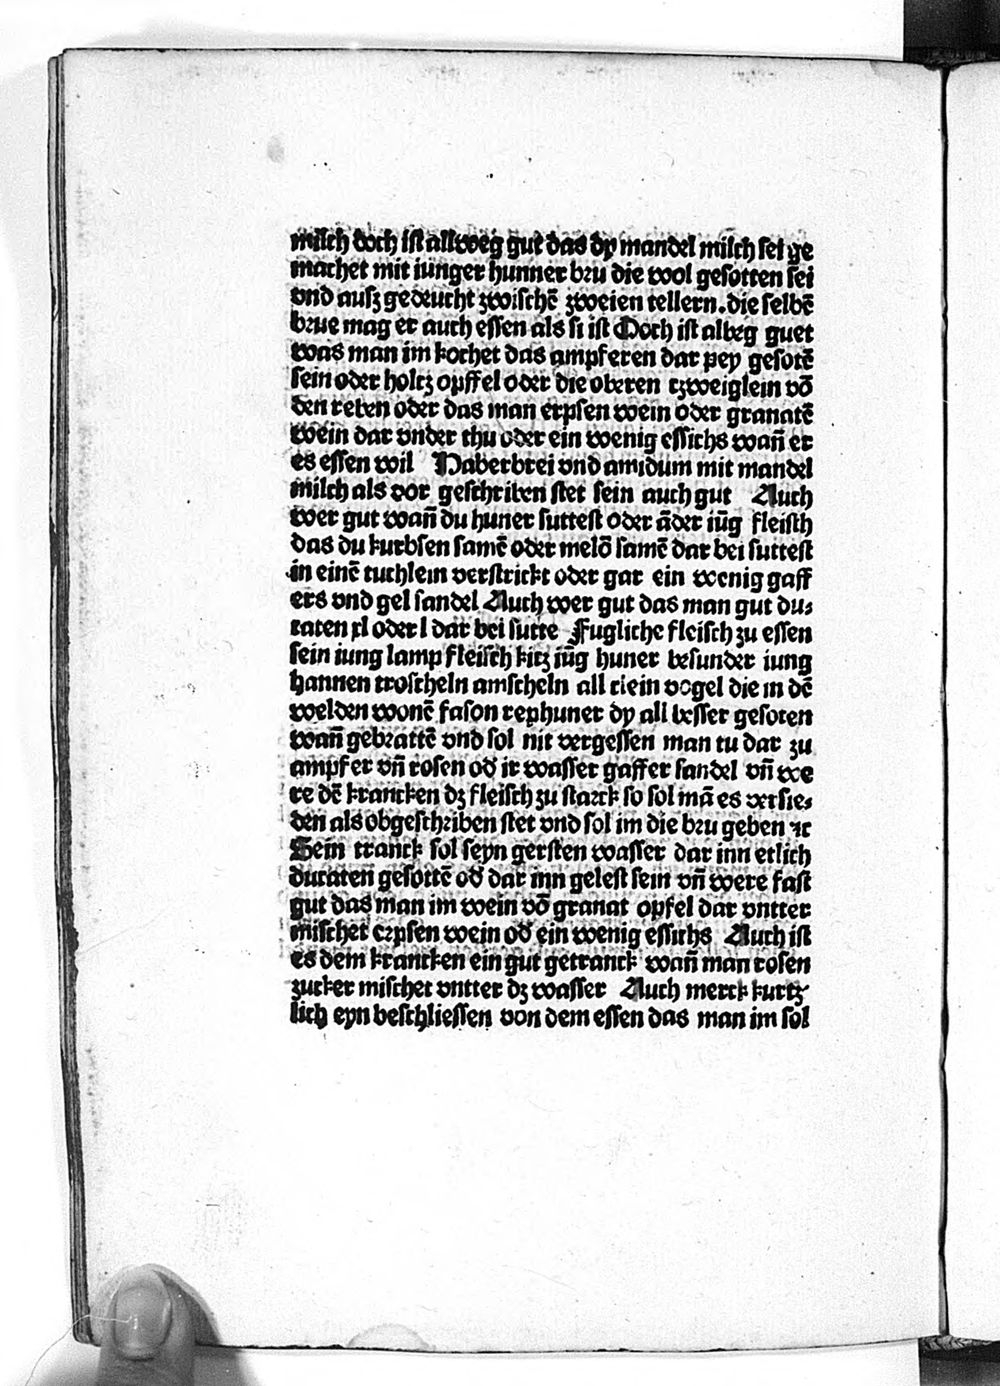 milch doch ist allweg gut das dy mandel milch sei ge
machet mit iunger hunner bru die wol gesotten sei
vnd ausz gedeucht zwischē zweien tellern. die selbē
brue mag er auch essen als si ist Doch ist albeg guet
was man im kochet das ampferen dar pey gesotē
sein oder holtz opffel oder die oberen tzweiglein vō
den reben oder das man erpsen wein oder granatē
wein dar vnder thu oder ein wenig essichs wañ er
es essen wil Haberbrei vnd amidum mit mandel
milch als vor geschriben stet sein auch gut Auch
wer gut wañ du huner suttest oder āder iūg fleisch
das du kurbsen samē oder melō samē dar bei suttest
in einē tuchlein verstrickt oder gar ein wenig gaff
ers vnd gel sandel Auch wer gut das man gut du⸗
raten xl oder l dar bei sutte Fugliche fleisch zu essen
sein iung lamp fleisch kitz iūg huner besunder iung
hannen troscheln amscheln all clein vogel die in dē
welden wonē fason rephuner dy all besser gesoten
wañ gebrattē vnd sol nit vergessen man tu dar zu
ampfer vñ rosen od ir wasser gaffer sandel vñ we
re dē krancken dz fleisch zu starck so sol mā es versie⸗
den als obgeschriben stet vnd sol im die bru geben ⁊c
Sein tranck sol seyn gersten wasser dar inn etlich
duraten gesottē od dar inn gelest sein vñ were fast
gut das man im wein vō granat opfel dar vntter
mischet erpsen wein od ein wenig essichs Auch ist
es dem krancken ein gut getranck wañ man rosen
zucker mischet vntter dz wasser Auch merck kurtz
lich eyn beschliessen von dem essen das man im sol